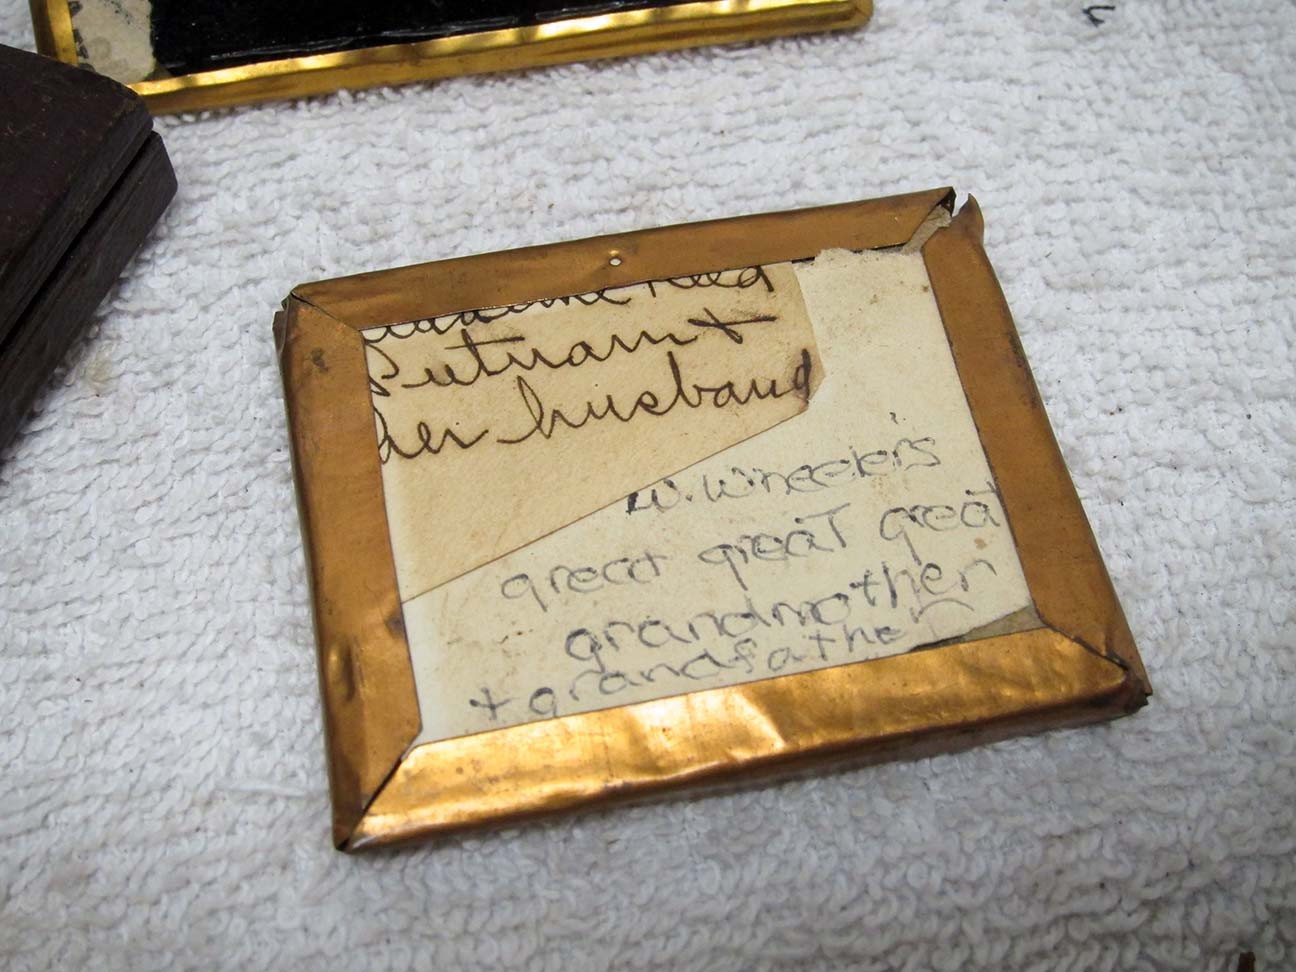 Reed
Putnam +
her husband
W. Wheeler's
great great great
grandmother
+ grandfather